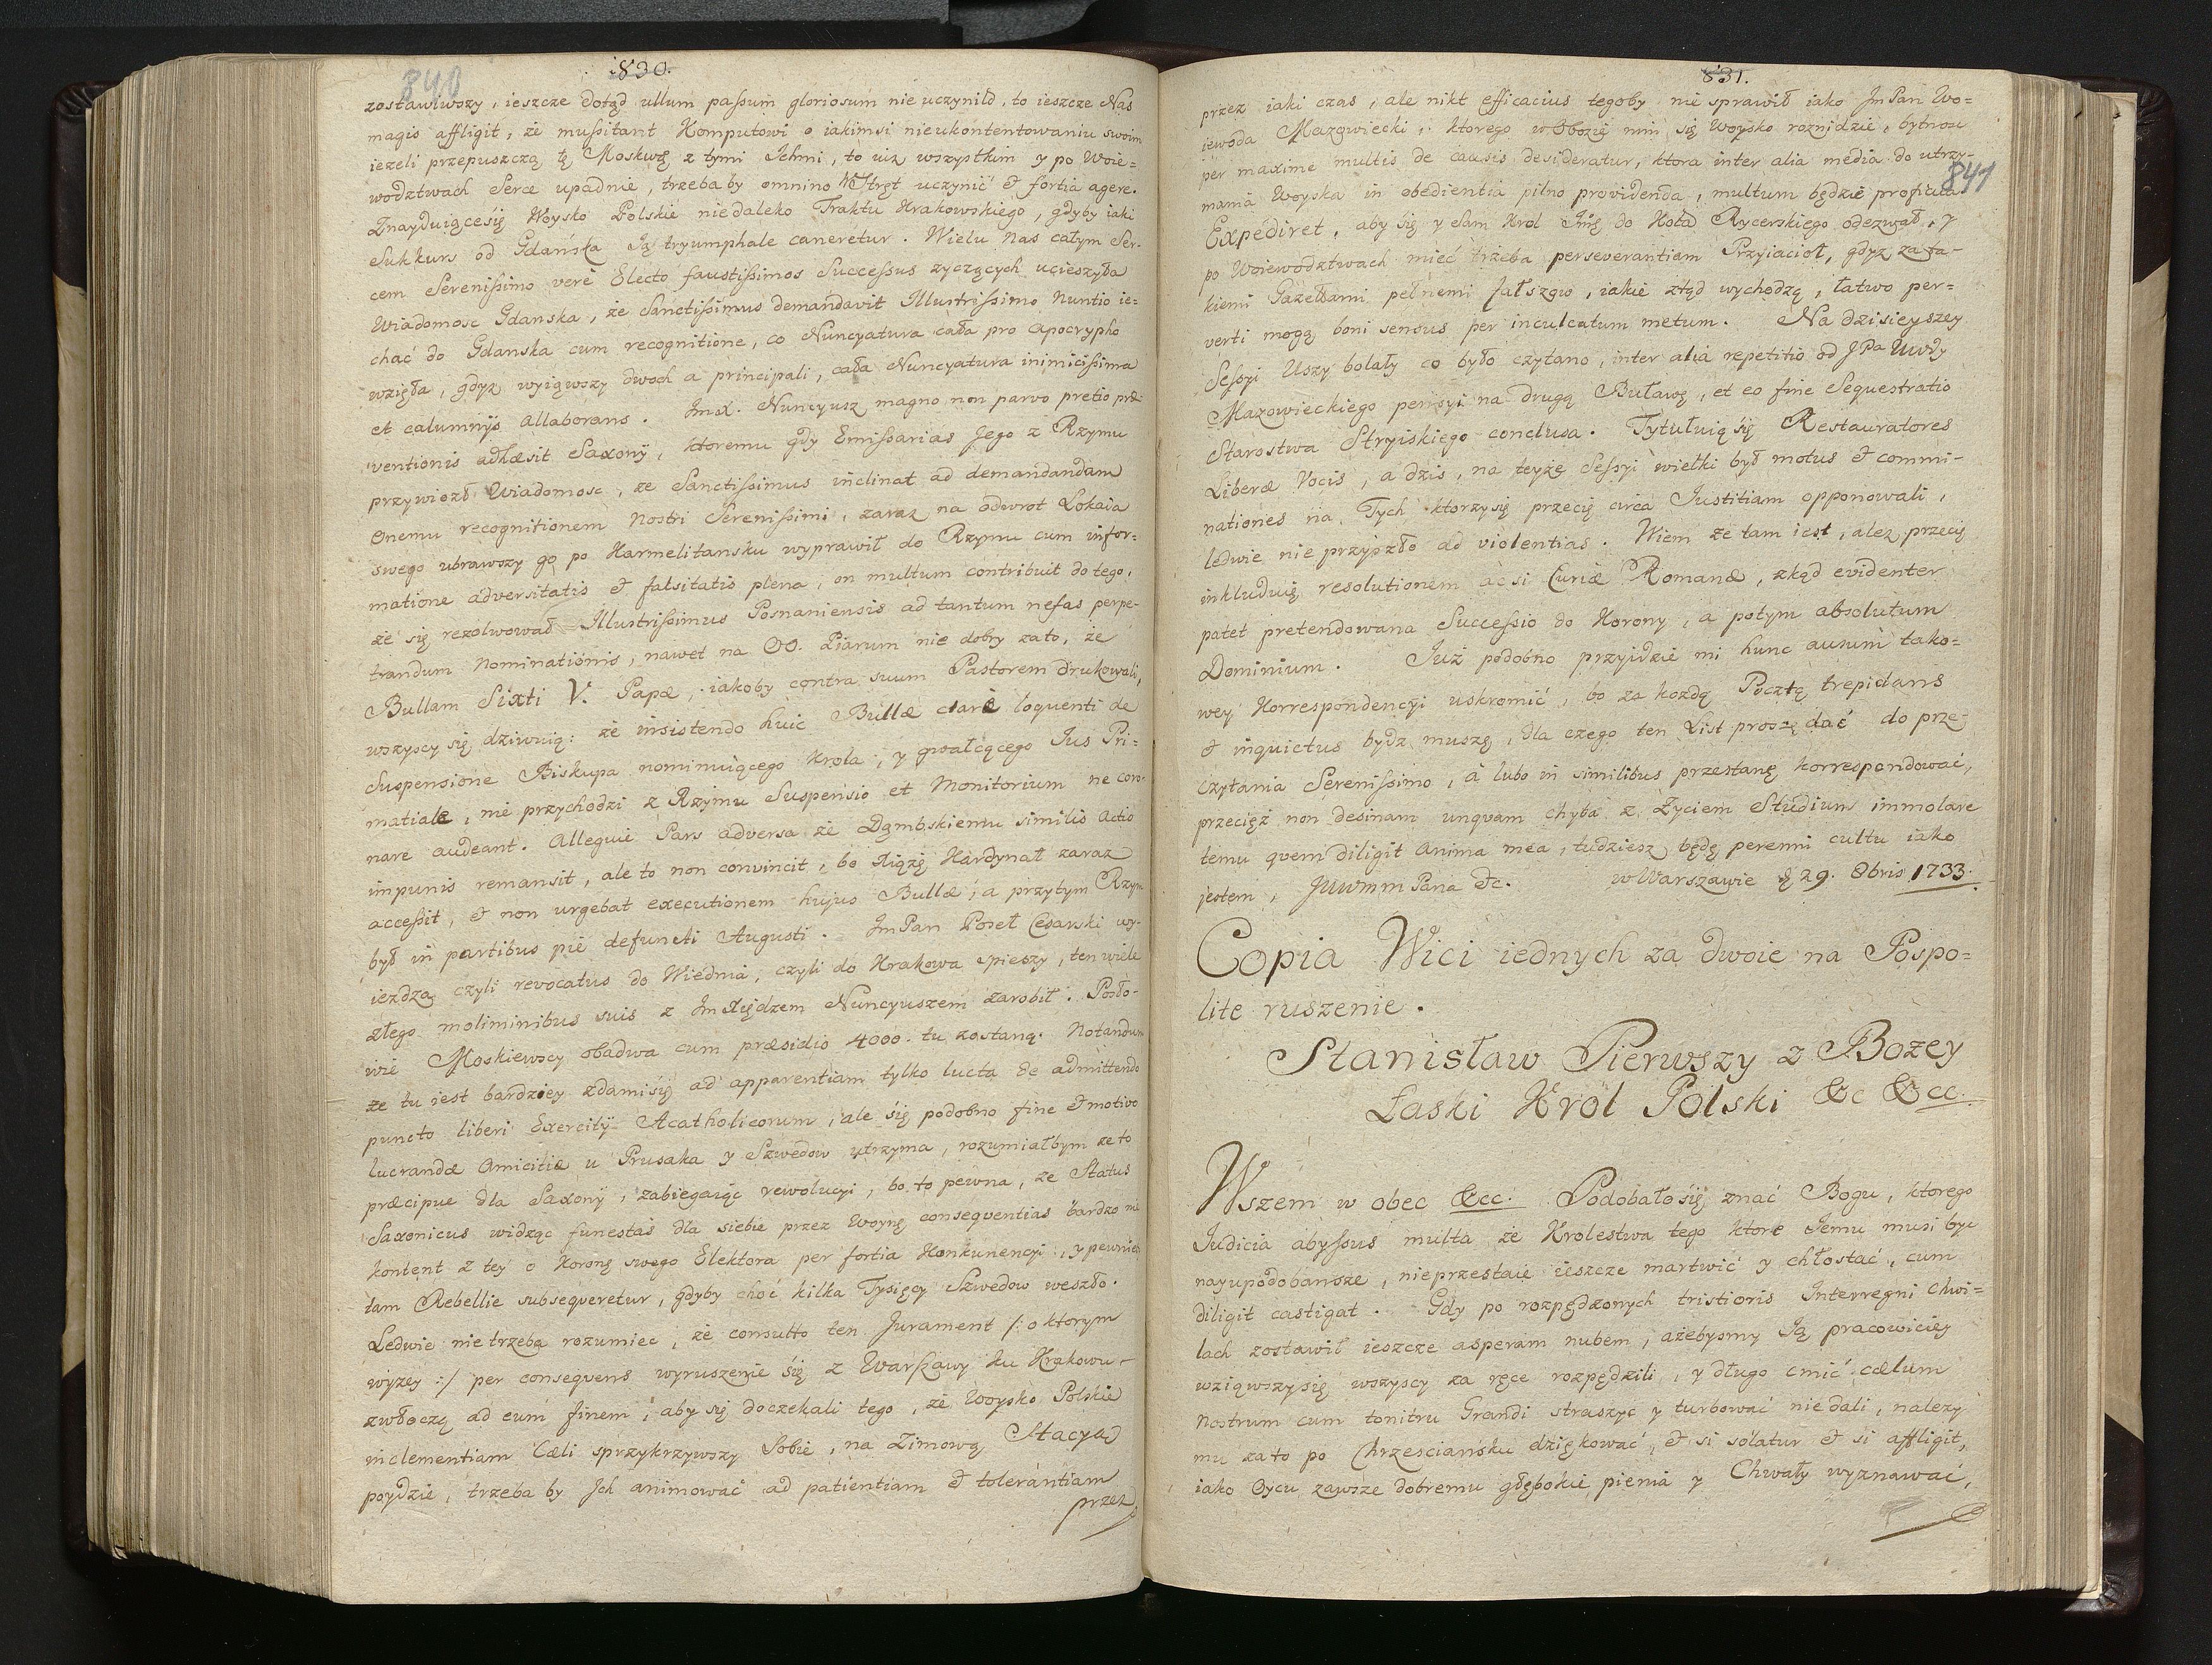 830.
840
zostawiwszy, ieszcze dotąd ullum passum gloriosum nie uczynild, to ieszcze Nas
magis affligit, że mussitant Komputowi o iakimsi nieukontentowaniu swoim
iezeli przepuszczą tę Moskwę z tymi Ichmi, to iuz wszystkim y po Woie=
wodztwach Serce upadnie, trzeba by omnino Wstręt uczynić & fortia agere.
Znayduiącesię Woysko Polskie niedaleko Traktu Krakowskiego, gdyby iaki
Sukkurs od Gdańska Ią tryumphale caneretur. Wielu Nas całym Ser-
cem Serenissimo verè Electo faustissimos Successus zyczących ucieszyła
Wiadomosc Gdanska, że Sanctissimus demandavit Illustrissimo Nuntio ie=
chać do Gdanska cum recognitione, co Nuncyatura cała pro apocrypho
wzięła, gdyz wyiąwszy dwoch a principali, cała Nuncyatura inimicissima
et calumnijs allaborans. ImX. Nuncyusz magno non parvo pretio præ-
ventionis adhæsit Saxonij, ktoremu gdy Emissarias Jego z Rzymu
przywiozł Wiadomosc, ze Sanctissimus inclinat ad demandandam
Onemu recognitionem Nostri Serenissimi, zaraz na odwrot Lokaia
swego ubrawszy go po Karmelitansku wyprawił do Rzymu cum infor=
matione adversitatis & falsitatis plena, on multum contribuit do tego,
że się rezolwował Illustrissimus Posnaniensis ad tantum nefas perpe-
trandum Nominationis, nawet na OO. Piarum nie dobry zato, że
Bullam Sixti V. Papæ, iakoby contra suum Pastorem drukowali,
wszyscy się dziwuią: że insistendo huic Bullæ clarè loquenti de
Suspensione Biskupa nominuiącego Krola, y gwałcącego Ius Pri=
matiale, nie przychodzi z Rzymu Suspensio et Monitorium ne coro-
nare audeant. Alleguie Pars adversa że Dąmbskiemu similis actio
impunis remansit, ale to non convincit, bo Xiążę Kardynał zaraz
accessit, & non urgebat executionem hujus Bullæ, a przytym Rzym
był in partibus piè defuncti Augusti. Im Pan Poseł Cesarski wy-
iezdza czyli revocatus do Wiednia, czyli do Krakowa spieszy, ten wiele
złego moliminibus suis z Im Xiędzem Nuncyuszem zarobił. Posło-
wie Moskiewscy obadwa cum præsidio 4000. tu zostaną. Notandum
że tu iest bardziey zdamisię ad apparentiam tylko lucta de admittendo
puncto liberi Exercitij Acatholicorum, ale się podobno fine & motivo
lucrandæ Amicitiæ u Prusaka y Szwedow utrzyma, rozumiałbym ze to
præcipue dla Saxonij, zabiegaiąc rewolucyi, bo to pewna, ze Status
Saxonicus widząc funestas dla siebie przez Woynę conseqventias bardzo nie
kontent z tey o Koronę swego Elektora per fortia Konkurencyi, y pewnieby
tam Rebellie subseqveretur, gdyby choć kilka Tysięcy Szwedow weszło.
Ledwie nie trzeba rozumiec, że consulto ten Jurament /: o ktorym
wyzey :/ per conseqvens wyruszenie się z Warszawy ku Krakowu
zwłoczą ad eum finem, aby się doczekali tego, że Woysko Polskie
inclementiam Cæli sprzykrzywszy sobie, na Zimową Stacyą
poydzie, trzeba by Ich animować ad patientiam & tolerantiam
przez
831.
841
przez iaki czas, ale nikt efficacius tegoby nie sprawił iako Im Pan Wo=
iewoda Mazowiecki, ktorego w Obozie nim się Woysko roznidzie, bytnosc
per maxime multis de causis desideratur, ktora inter alia media do utrzy-
mania Woyska in obedientia pilno providenda, multum będzie proficua.
Expediret, aby się y sam Krol Imę do Koła Rycerskiego odezwał, y
po Woiewodztwach mieć trzeba perseverantiam Przyiacioł, gdyz za ta-
kiemi Gazettami pełnemi fałszow, iakie ztąd wychodzą, łatwo per=
verti mogą boni sensus per inculcatum metum. Na dzisieyszey
Sessyi Uszy bolały co było czytano, inter alia repetitio od JPa Uwdy
Mazowieckiego pensyi na drugą Buławę, et eo fine Sequestratio
Starostwa Stryiskiego conclusa. Tytułuią się Restauratores
Liberæ Vocis, a dzis, na teyze Sessyi wielki był motus & commi-
nationes na Tych ktorzy się przecię circa Iustitiam opponowali,
ledwie nie przyszło ad violentias. Wiem że tam iest, alez przecię
inkluduię resolutionem ac si Curiæ Romanæ, zkąd evidenter
patet pretendowana Successio do Korony, a potym absolutum
Dominium. Już podobno przyidzie mi hunc ausum tako=
wey Korrespondencyi uskromić, bo za kozdą Pocztą trepidans
& inquietus bydz muszę, dla czego ten List proszę dać do prze-
czytania Serenissimo, à lubo in similibus przestanę korrespondować,
przecięż non desinam unqvam chyba z Zyciem Studium immolare
temu qvem diligit Anima mea, tudziesz będę perenni cultu iako
jestem, JUwmm Pana &c. w Warszawie d 29. 8bris 1733.
Copia Wici iednych za dwoie na Pospo=
lite ruszenie.
Stanisław Pierwszy z Bozey
Łaski Król Polski &c &cc.
Wszem w obec &cc. Podobało się znać Bogu, ktorego
Iudicia abyssus multa że Krolestwa tego ktore Jemu musi byc
nayupodobansze, nieprzestaie ieszcze martwić y chłostać, cum
diligit castigat. Gdy po rozpędzonych tristioris Interregni Chwi=
lach zostawił ieszcze asperam nubem, ażebysmy Ią pracowiciey
wziąwszy się wszyscy za ręce rozpędzili, y długo cmić cælum
nostrum cum tonitru Grandi straszyc y turbować niedali, nalezy
mu za to po Chrzesciańsku dziękować, & si solatur & si affligit,
iako Oycu zawsze dobremu głębokie pienia y Chwały wyznawać,